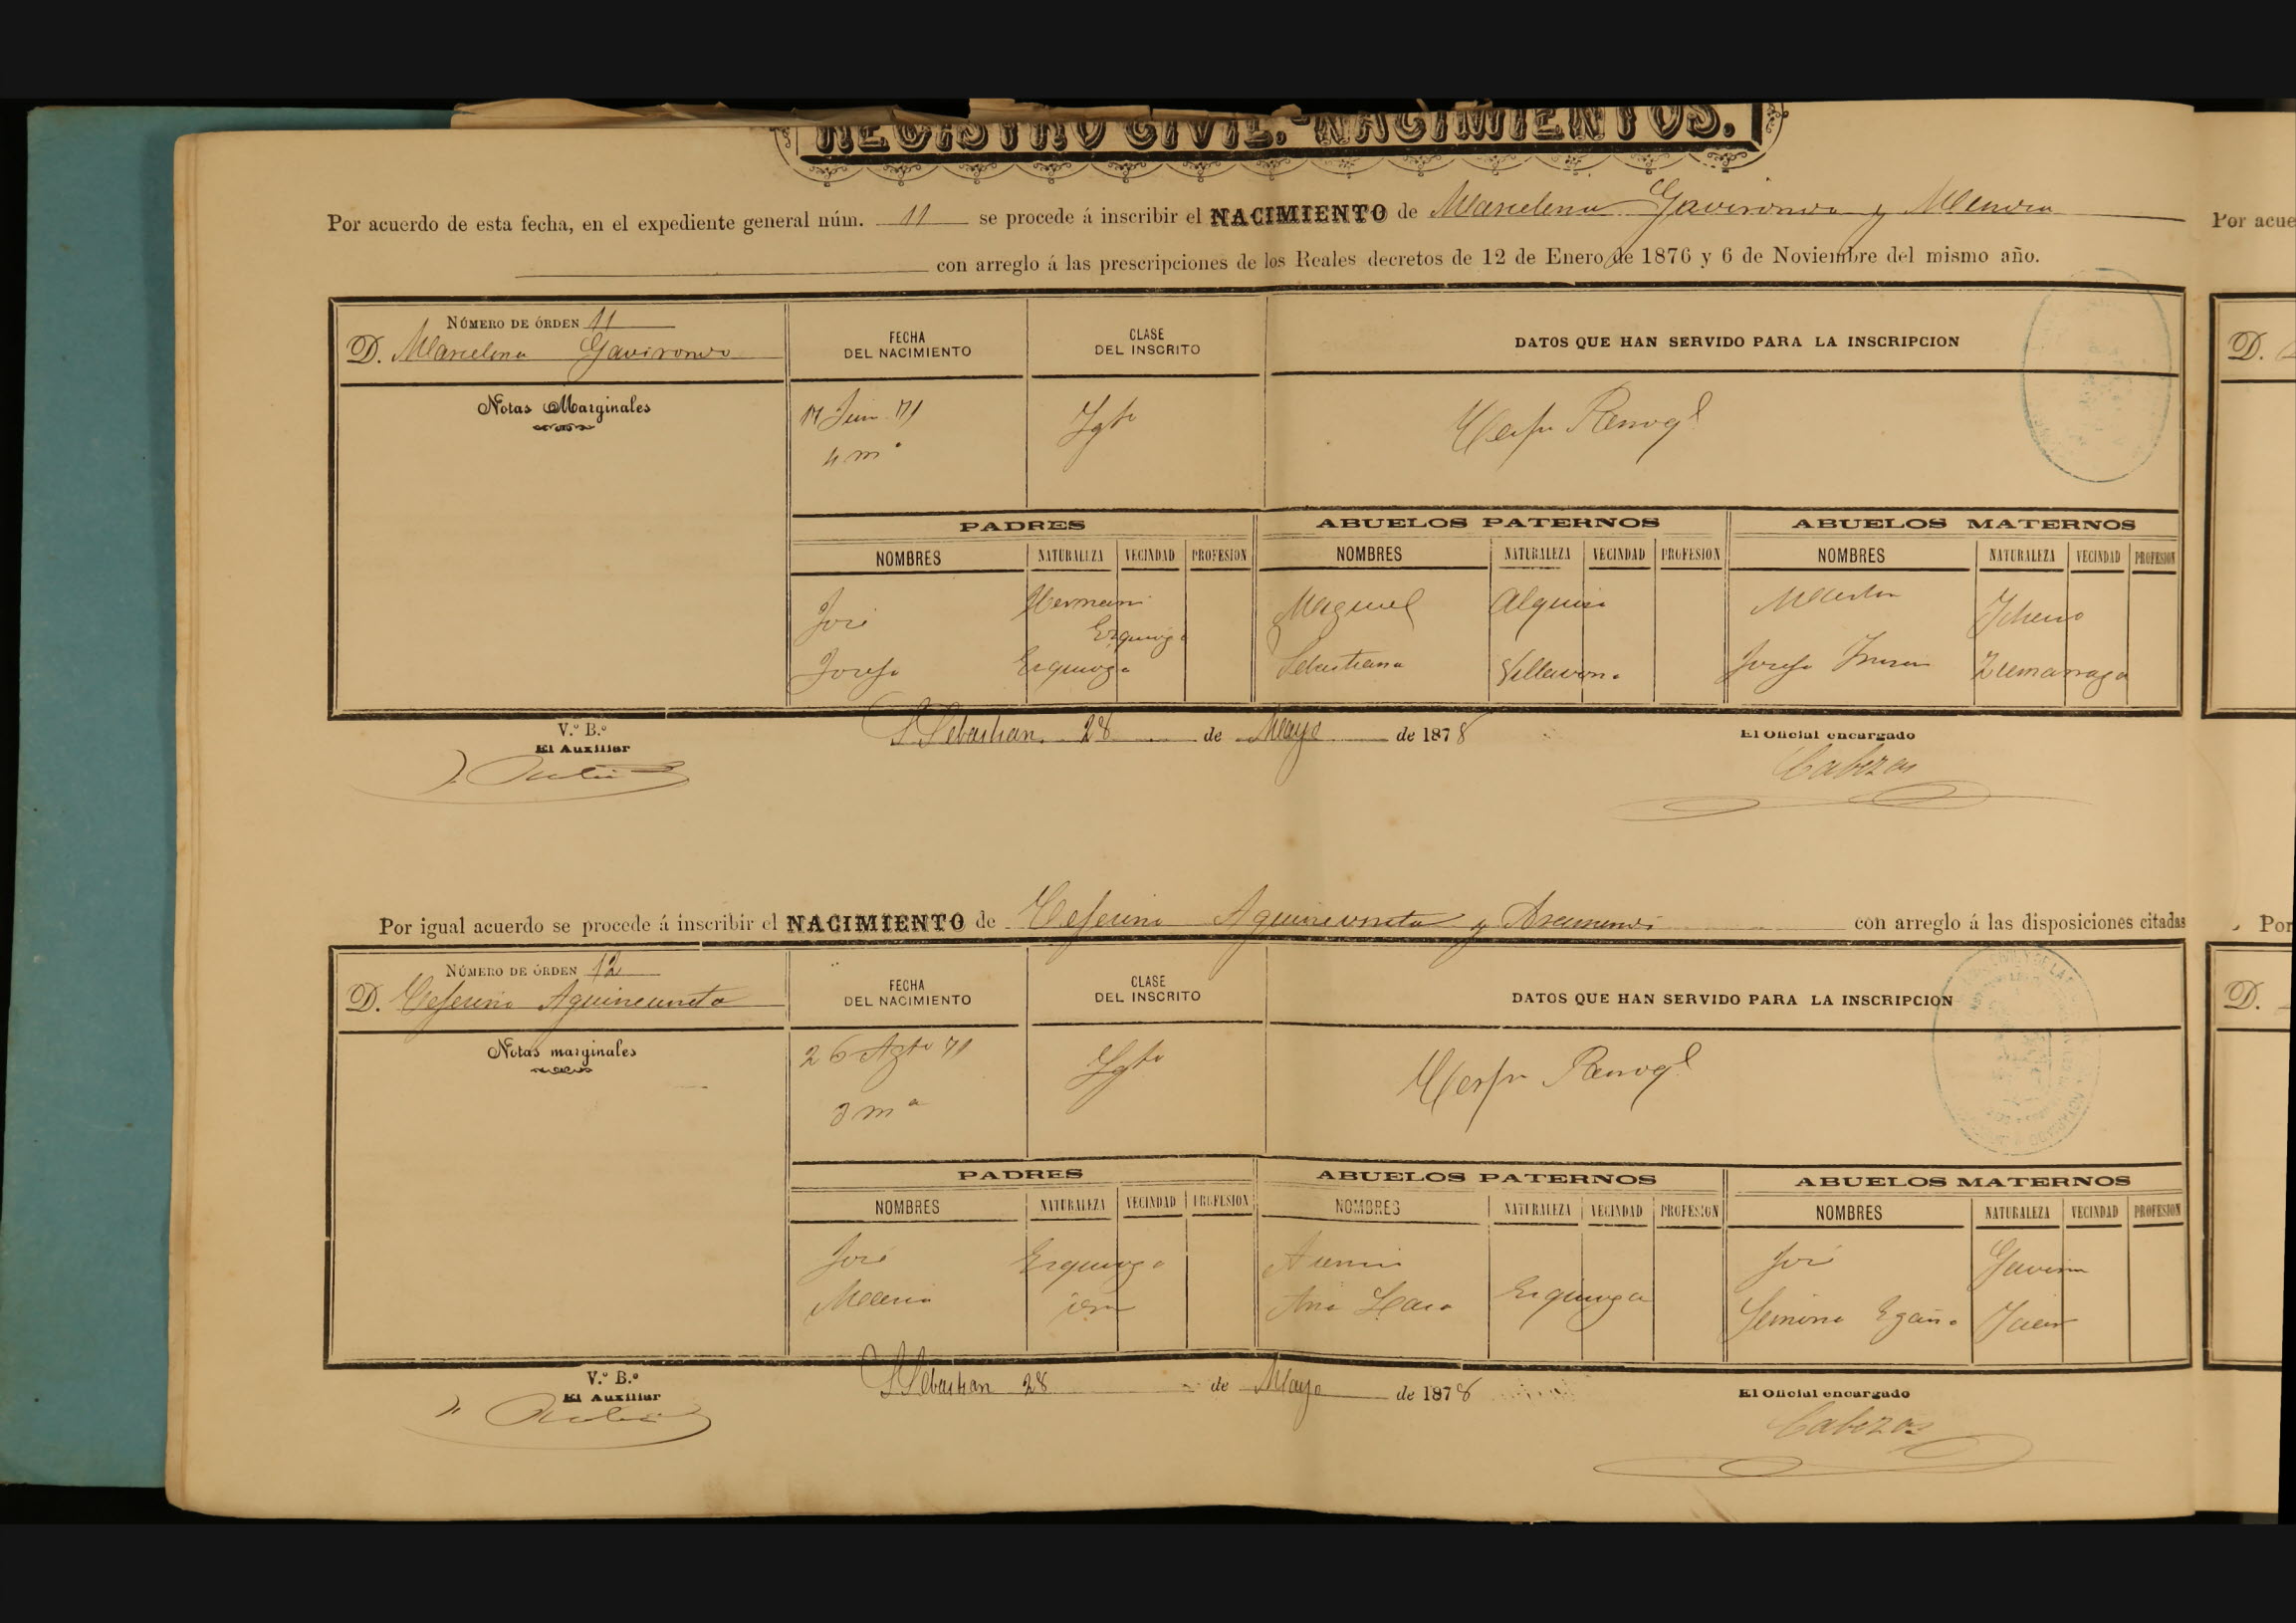 REGISTRO CIVIL.-NACIMIENTOS.
Por acuerdo de esta fecha, en el expediente general núm. 11 se procede á inscribir el NACIMIENTO de Marcelina Gavirondo y Mendia
Por acue
con arreglo á las prescripciones de los Reales decretos de 12 de Enero de 1876 y 6 de Noviembre del mismo año.
NÚMERO DE ÓRDEN 11
D. Marcelina Gavirondo
FECHA DEL NACIMIENTO
CLASE DEL INSCRITO
DATOS QUE HAN SERVIDO PARA LA INSCRIPCION
D.
Notas Marginales
17 Jun 71
4 mª
PADRES
ABUELOS PATERNOS
ABUELOS MATERNOS
NOMBRES NATURALEZA VECINDAD PROFESION NOMBRES NATURALEZA VECINDAD PROFESION NOMBRES NATURALEZA VECINDAD PROFESION
José Hernani Ezquioga Maguel Alquiza Martin Ichaso
Josefa Ezquioga Sebastiana Villavona Josefa Zumarraga
S Sebastian 28 de Mayo de 1878
V.º B.º
El Auxiliar
El Oficial encargado
Cabezas
Por igual acuerdo se procede á inscribir el NACIMIENTO de Ceferino Aguinconeta y con arreglo á las disposiciones citadas
Por
NÚMERO DE ÓRDEN 12
D. Ceferino
FECHA DEL NACIMIENTO
CLASE DEL INSCRITO
DATOS QUE HAN SERVIDO PARA LA INSCRIPCION
D.
Notas marginales
26 Agto 71
3 mª
PADRES
ABUELOS PATERNOS
ABUELOS MATERNOS
NOMBRES NATURALEZA VECINDAD PROFESION NOMBRES NATURALEZA VECINDAD PROFESION NOMBRES NATURALEZA VECINDAD PROFESION
José Ezquioga José Gaviria
Maria idm Ana Ezquioga Simona Egaña
S Sebastian 28 de Mayo de 1878
V.º B.º
El Auxiliar
El Oficial encargado
Cabezas